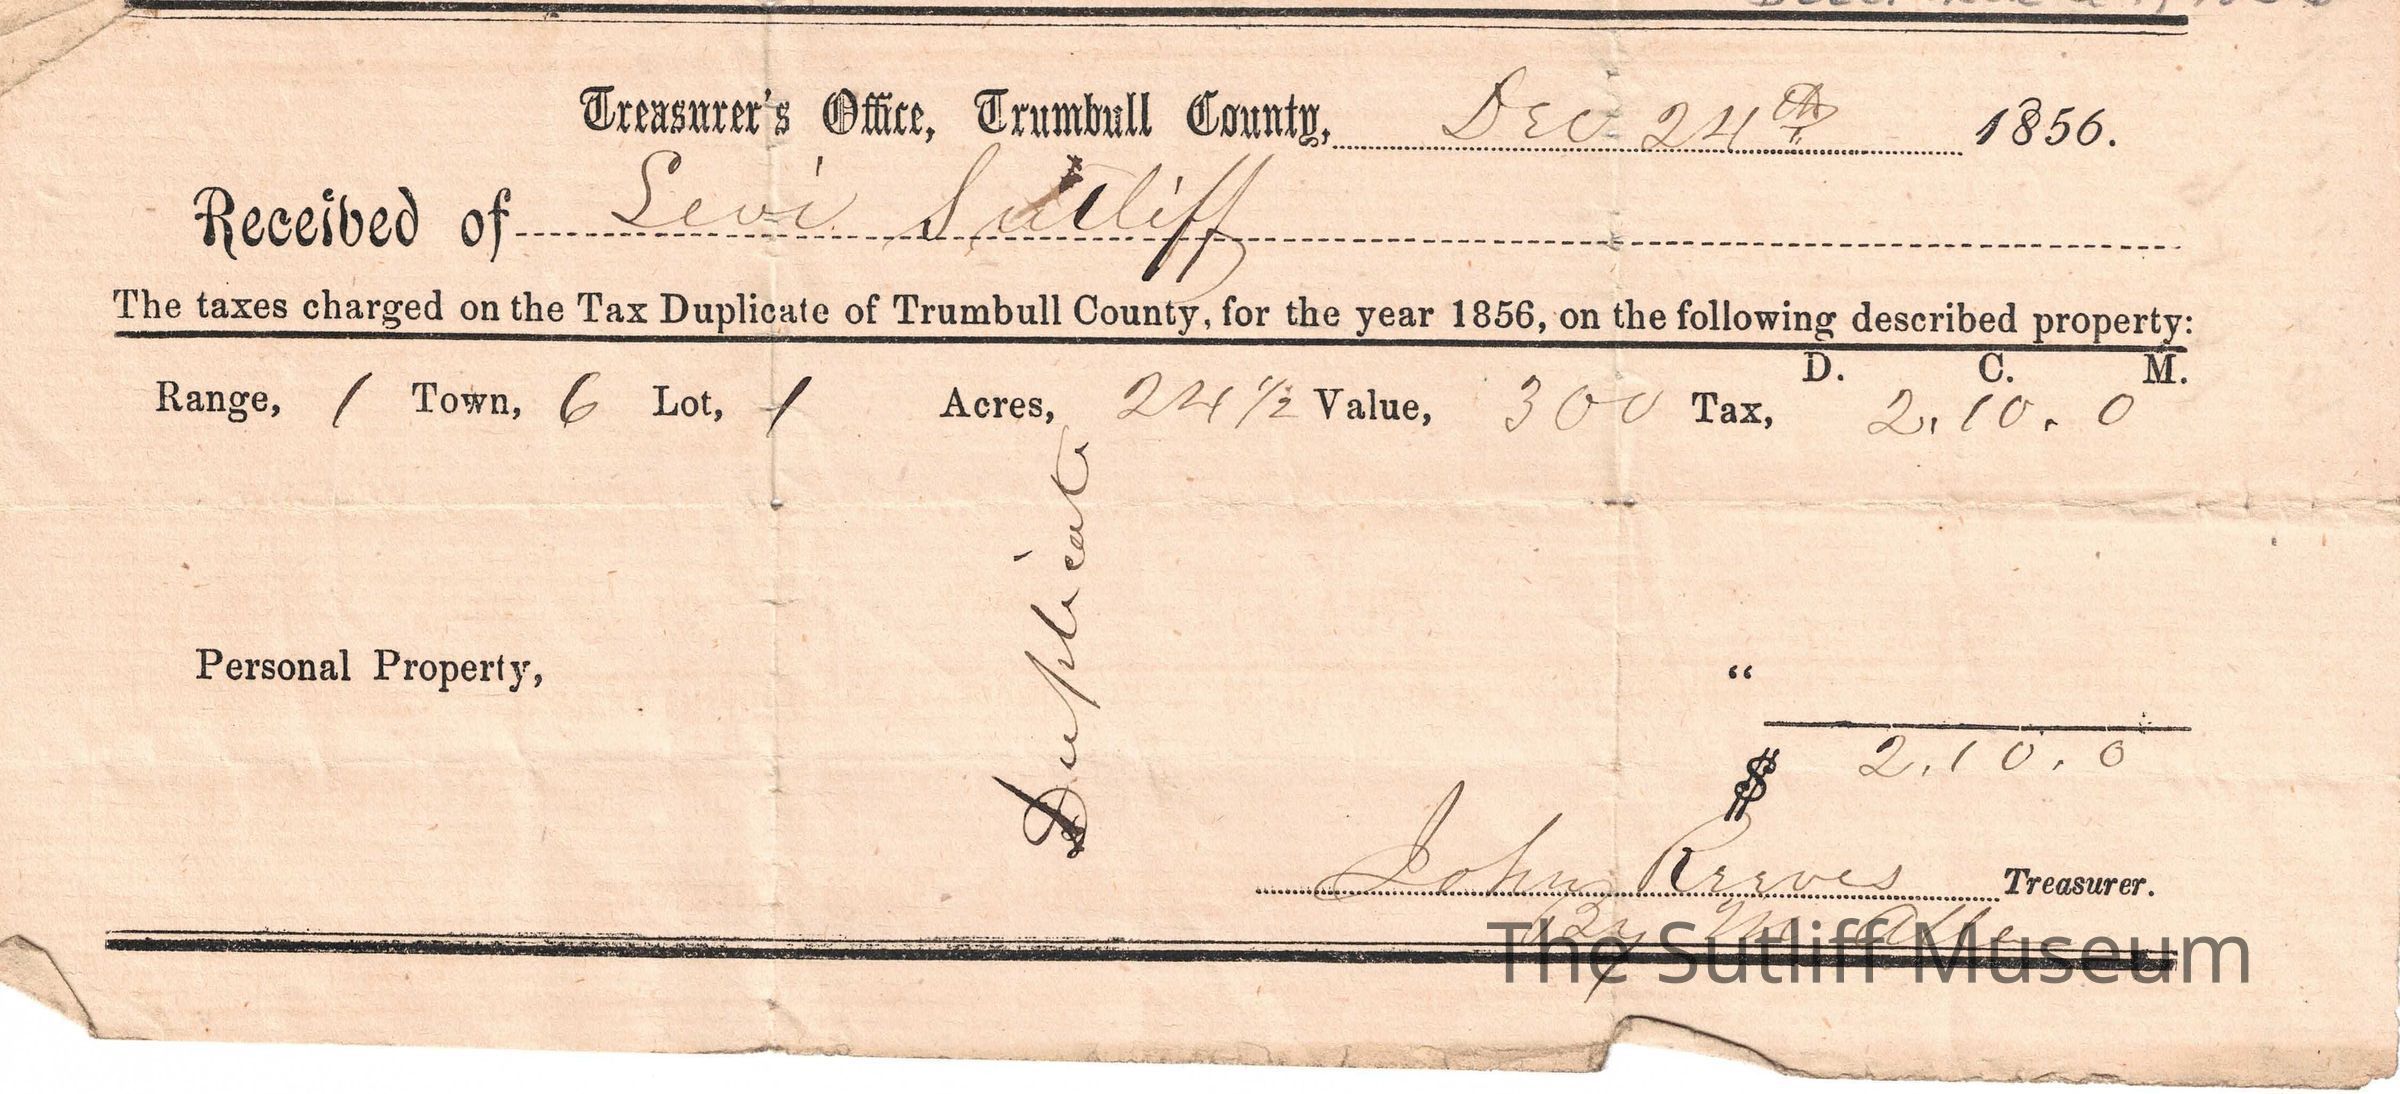 Treasurer's Office, Trumbull County, Dec 24th 1856.
Received of Levi Sutliff
The taxes charged on the Tax Duplicate of Trumbull County, for the year 1856, on the following described property:
D. C. M.
Range, 1 Town, 6 Lot, 1 Acres, 24 1/2 Value, 300 Tax, 2.10.0
Duplicate
Personal Property, “
$ 2.10.0
John Reeves Treasurer.
By
The Sutliff Museum